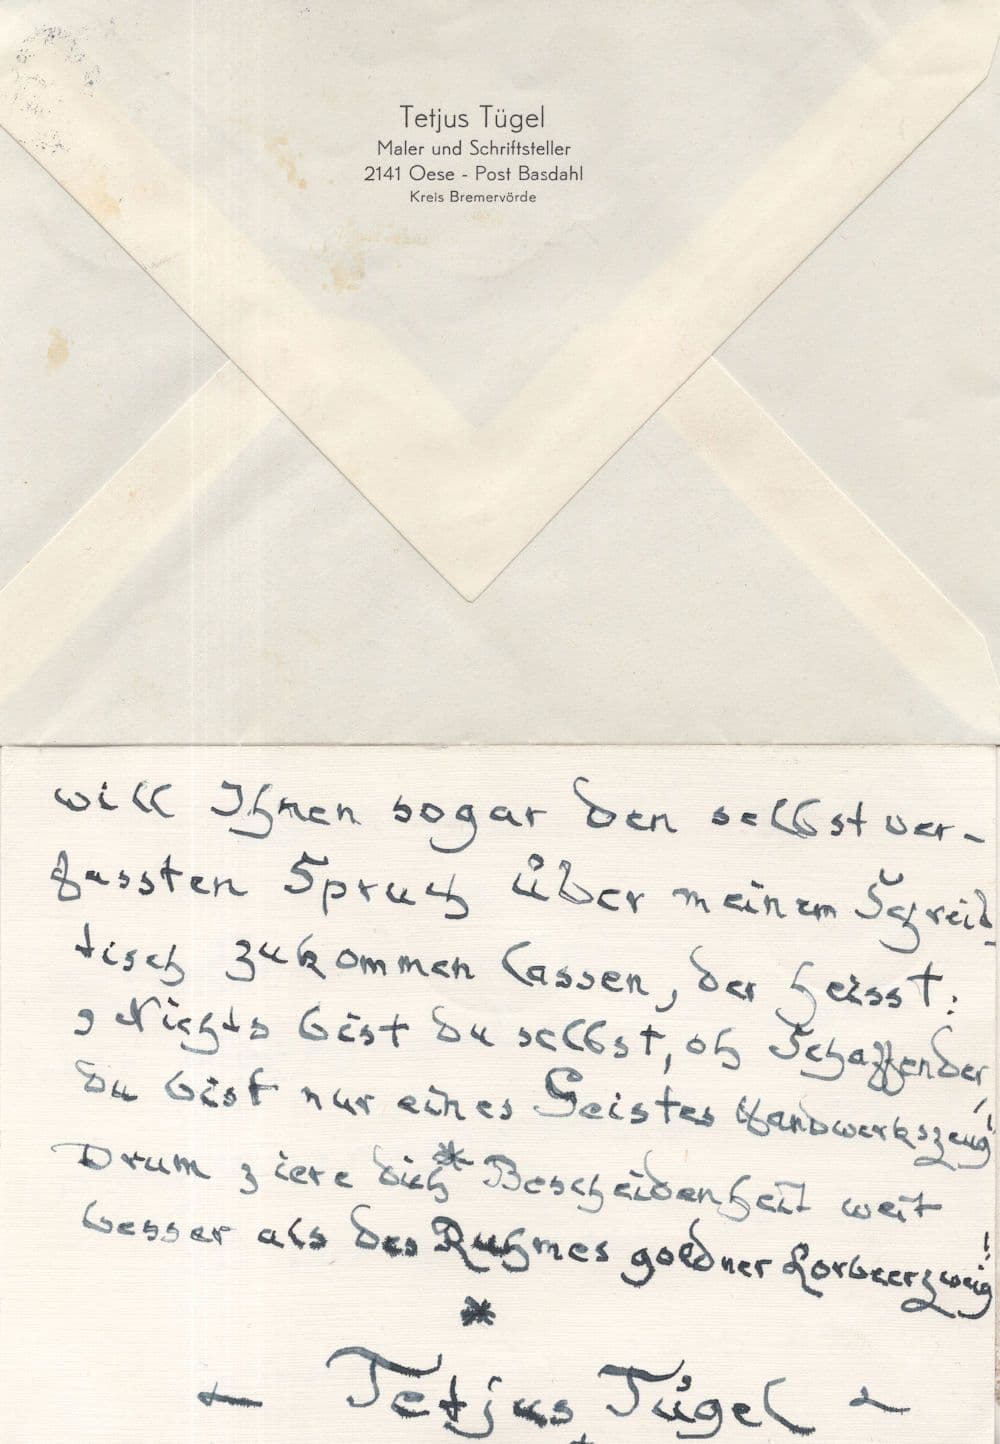 Tetjus Tügel
Maler und Schriftsteller
2141 Oese - Post Basdahl
Kreis Bremervörde
will Ihnen sogar den selbstver-
fassten Spruch über meinem Schreib-
tisch zukommen lassen, der heisst:
„Nichts bist du selbst, oh Schaffender,
du bist nur eines Geistes Handwerkszeug!
Drum ziere dich Bescheidenheit weit
besser als des Ruhmes goldner Lorbeerzweig!
*
~ Tetjus Tügel ~